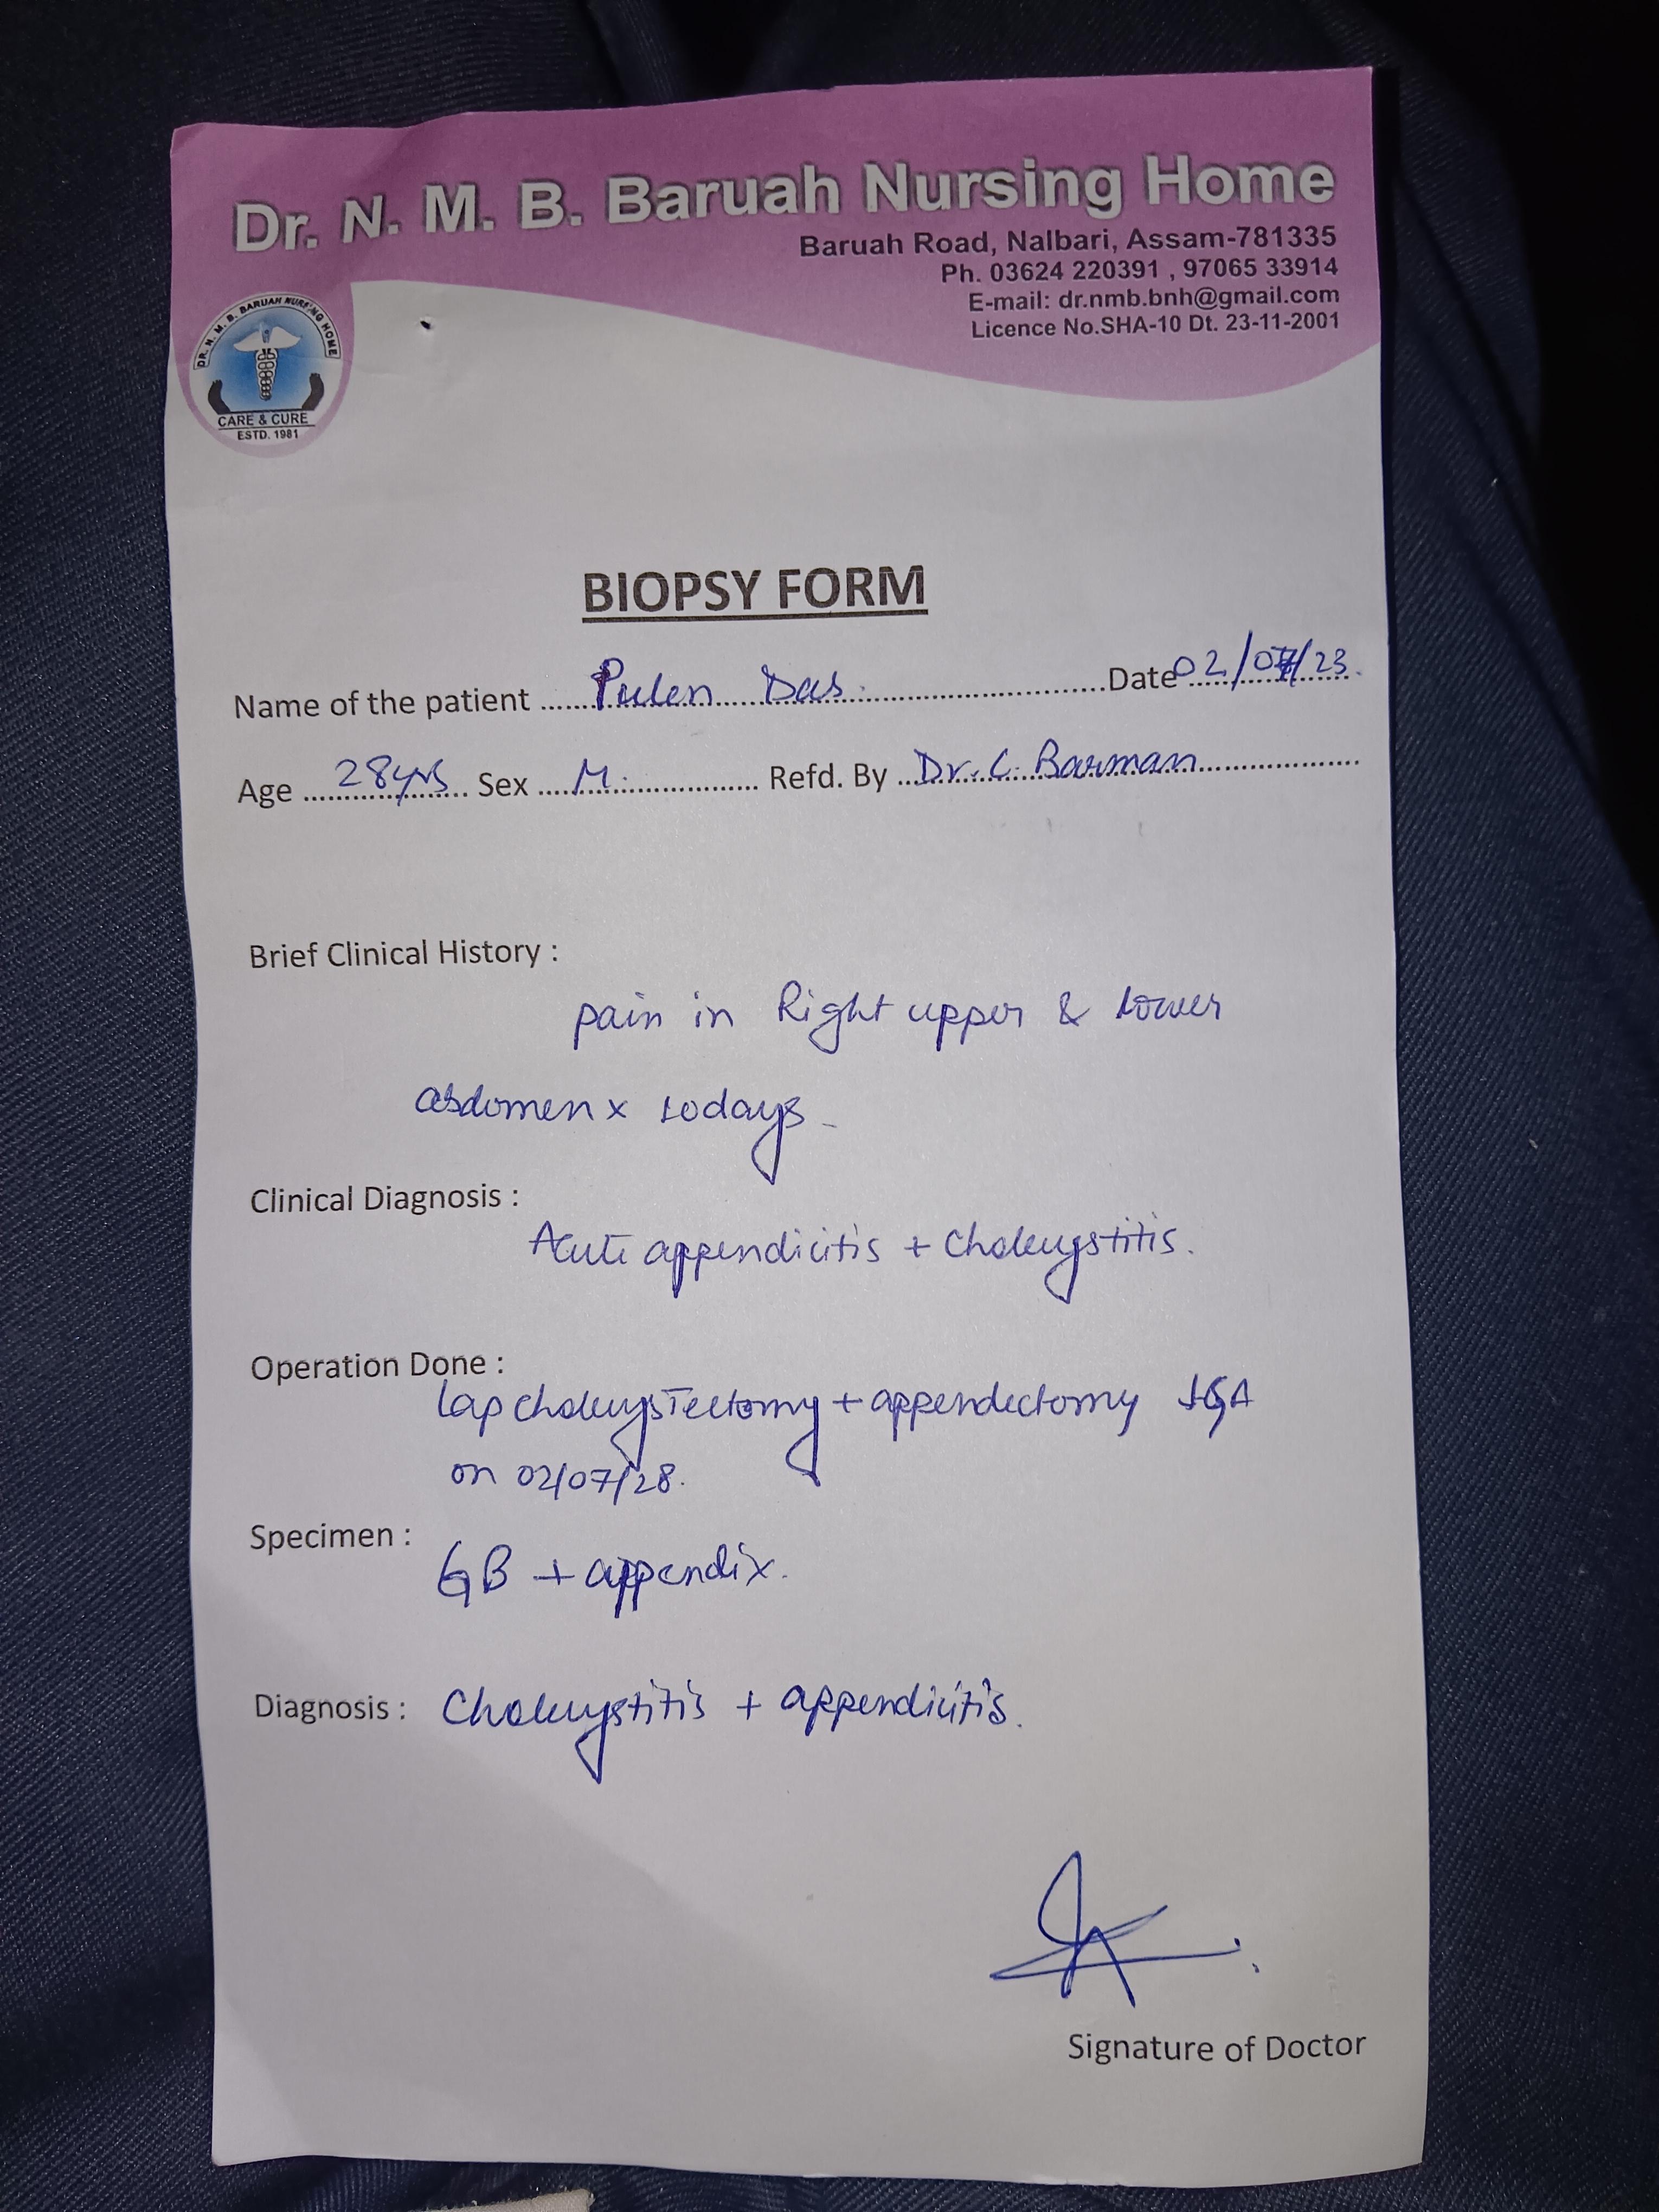 Dr. N. M. B. Baruah Nursing Home
Baruah Road, Nalbari, Assam-781335
Ph. 03624 220391 , 97065 33914
E-mail: dr.nmb.bnh@gmail.com
Licence No.SHA-10 Dt. 23-11-2001
DR. N. M. B. BARUAH NURSING HOME
CARE & CURE
ESTD. 1981
BIOPSY FORM
Name of the patient Pulen Das Date 02/07/23
Age 28yrs Sex M. Refd. By Dr. C. Barman
Brief Clinical History :
pain in Right upper & lower
abdomen x 10days
Clinical Diagnosis :
Acute appendicitis + Cholecystitis.
Operation Done :
Lap cholecystectomy + appendectomy
on 02/07/28.
Specimen :
GB + appendix.
Diagnosis : Cholecystitis + appendicitis.
Signature of Doctor